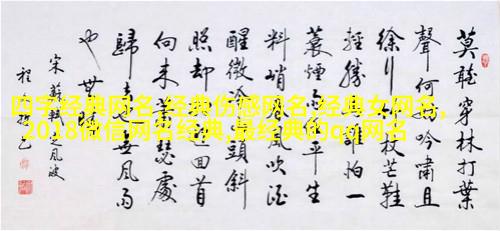 莫聽穿林打葉
聲何妨吟嘯且
徐行竹杖芒鞋
輕勝馬誰怕一
蓑煙雨任平生
料峭春風吹酒
醒微冷山頭斜
照却相迎回首
向来蕭瑟處
歸去也無風雨
也無晴
宋蘇軾定風波
四字经典网名,经典伤感网名,经典女网名,
2018微信网名经典,最经典的qq网名